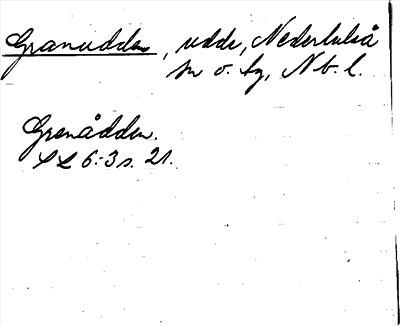 Granudden, udde, Nederluleå
sn o. tg, Nb. l.
Grenådden.
SL 6:3 s. 21.